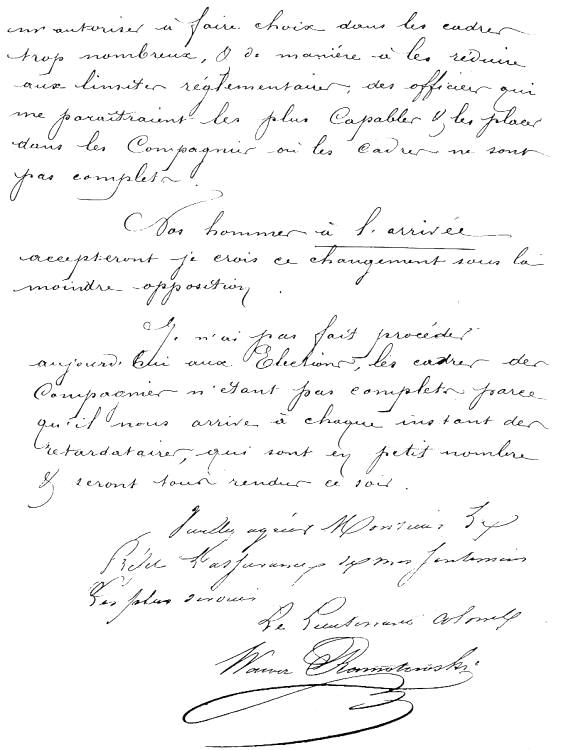 m'autoriser à faire choix dans les cadres
trop nombreux, & de manière à les réduire
aux limites réglementaires, des officier qui
me paraîtraient les plus Capables & les placer
dans les Compagnies où les Cadres ne sont
pas complets.
Nos hommes à l'arrivée
accepteront je crois ce changement sous la
moindre opposition.
Je n'ai pas fait procéder
aujourd'hui aux Elections, les cadres des
Compagnies n'étant pas complets parce
qu'il nous arrive à chaque instant des
retardataires, qui sont en petit nombre
& seront tous rendus ce soir.
Veuillez agréer Monsieur Le
Préfet l'assurance de mes sentiments
Les plus dévoués
Le Lieutenant Colonel